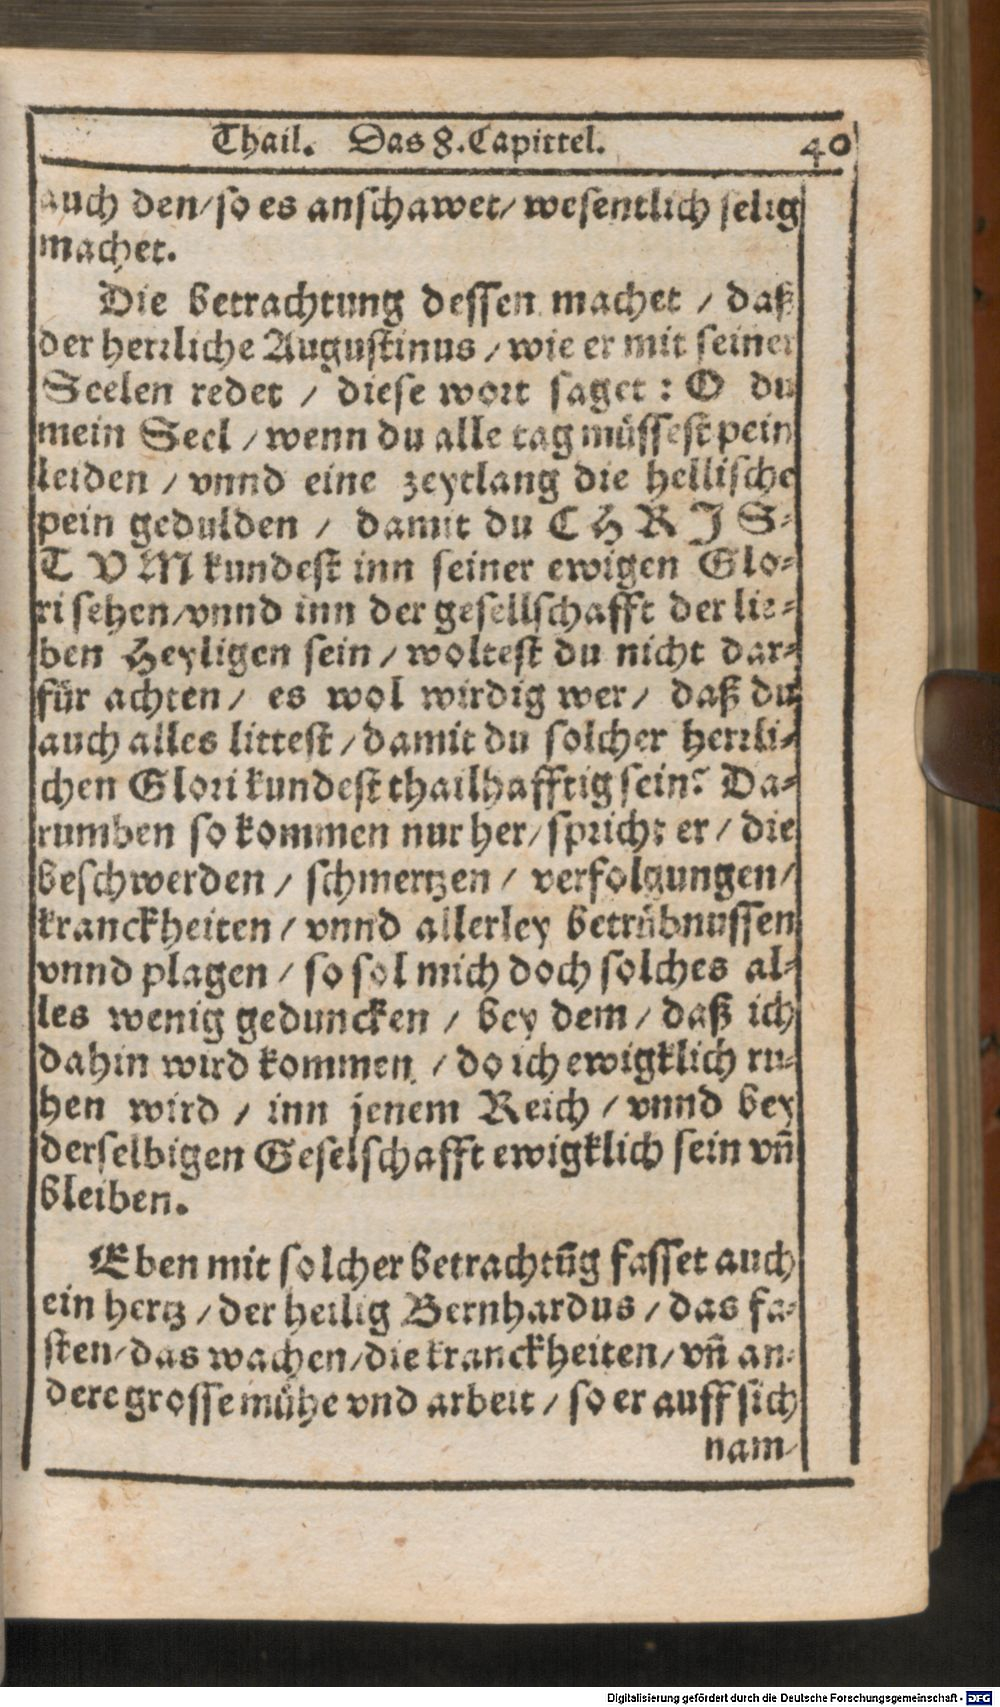 Thail. Das 8. Capittel. 40
auch den/ so es anschawet/ wesentlich selig
machet.
Die betrachtung dessen machet / daß
der herrliche Augustinus / wie er mit seiner
Seelen redet / diese wort saget : O du
mein Seel / wenn du alle tag müssest pein
leiden / vnnd eine zeytlang die hellische
pein gedulden / damit du CHRIS-
TVM kundest inn seiner ewigen Glo-
ri sehen/vnnd inn der gesellschafft der lie-
ben Heyligen sein / woltest du nicht dar-
für achten / es wol wirdig wer / daß du
auch alles littest / damit du solcher herrli-
chen Glori kundest thailhafftig sein? Da-
rumben so kommen nur her / spricht er / die
beschwerden / schmertzen / verfolgungen /
kranckheiten / vnnd allerley betrübnussen
vnnd plagen / so sol mich doch solches al-
les wenig geduncken / bey dem / daß ich
dahin wird kommen / do ich ewigklich ru-
hen wird / inn jenem Reich / vnnd bey
derselbigen Geselschafft ewigklich sein vn̄
bleiben.
Eben mit solcher betrachtūg fasset auch
ein hertz / der heilig Bernhardus / das fa-
sten/das wachen/die kranckheiten/ vn̄ an-
dere grosse mühe vnd arbeit / so er auff sich
nam/
Digitalisierung gefördert durch die Deutsche Forschungsgemeinschaft - DFG